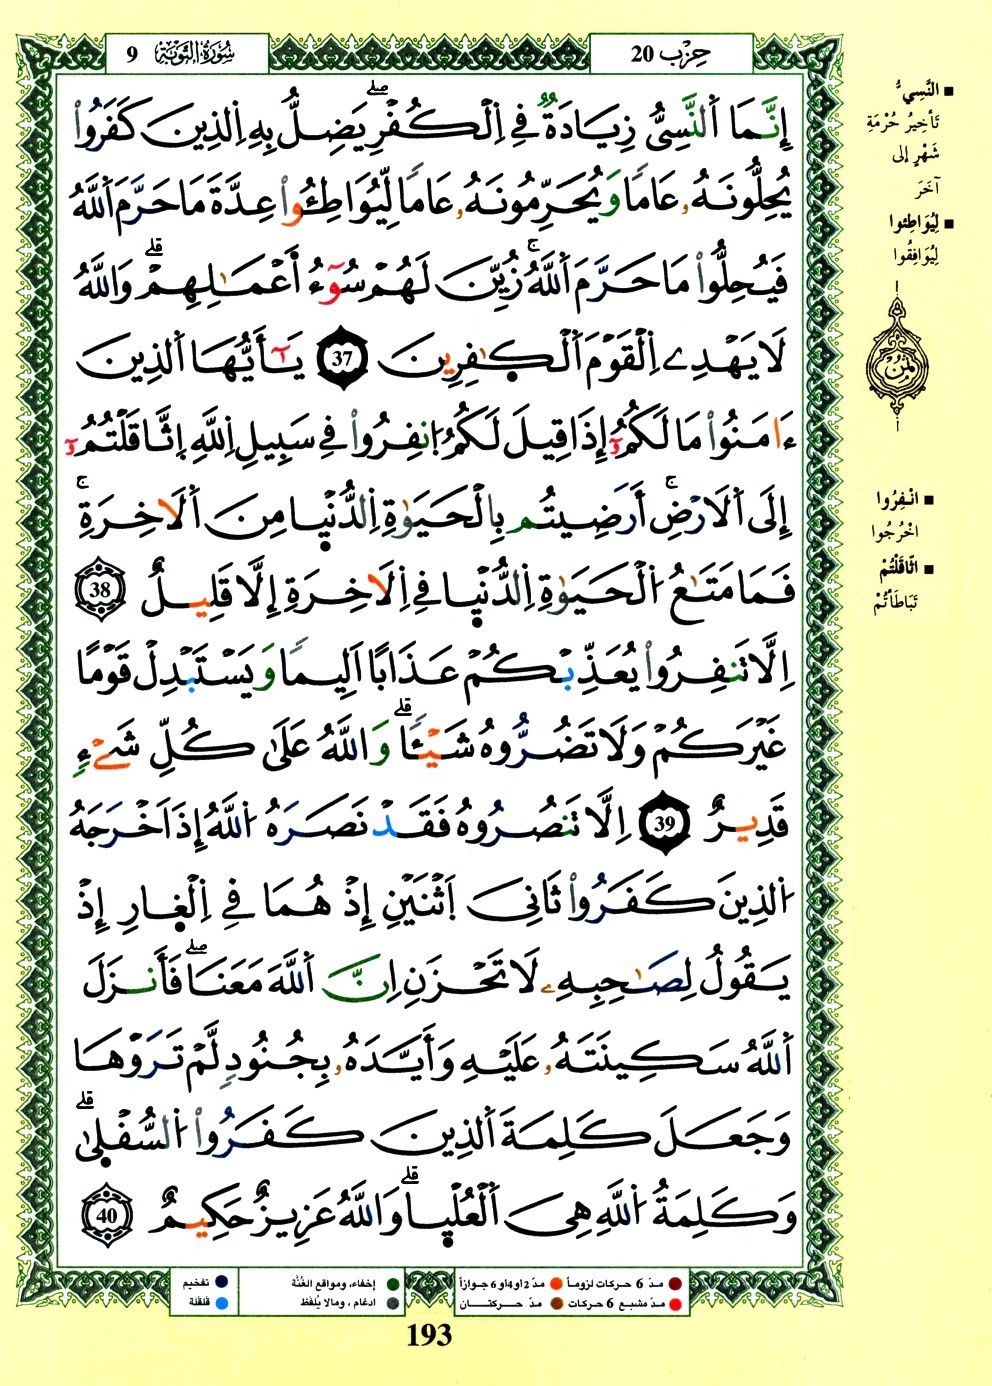 حِزْب 20
سُورَةُ التَّوْبَة 9
إِنَّمَا اَ۬لنَّسِيُّ زِيَادَةٞ فِے اِ۬لْكُفْرِۖ يَضِلُّ بِهِ اِ۬لذِينَ كَفَرُواْ
يُحِلُّونَهُۥ عَاماٗ وَيُحَرِّمُونَهُۥ عَاماٗ لِّيُوَاطِـُٔواْ عِدَّةَ مَا حَرَّمَ اَ۬للَّهُ
فَيُحِلُّواْ مَا حَرَّمَ اَ۬للَّهُۚ زُيِّنَ لَهُمْ سُوٓءُ أَعْمَٰلِهِمْۗ وَاللَّهُ
لَا يَهْدِے اِ۬لْقَوْمَ اَ۬لْكٰ۪فِرِينَ 37 يَٰٓأَيُّهَا اَ۬لذِينَ
ءَامَنُواْ مَا لَكُمُۥٓ إِذَا قِيلَ لَكُمُ اُ۪نفِرُواْ فِے سَبِيلِ اِ۬للَّهِ اِ۪ثَّاقَلْتُمُۥٓ
إِلَى اَ۬لَارْضِۚ أَرَضِيتُم بِالْحَيَوٰةِ اِ۬لدُّنْي۪ا مِنَ اَ۬لَاخِرَةِۚ
فَمَا مَتَٰعُ اُ۬لْحَيَوٰةِ اِ۬لدُّنْي۪ا فِے اِ۬لَاخِرَةِ إِلَّا قَلِيلٌ 38
اِلَّا تَنفِرُواْ يُعَذِّبْكُمْ عَذَاباً اَلِيماٗ وَيَسْتَبْدِلْ قَوْماً
غَيْرَكُمْ وَلَا تَضُرُّوهُ شَيْـٔاٗۗ وَاللَّهُ عَلَىٰ كُلِّ شَےْءٖ
قَدِيرٌ 39 اِلَّا تَنصُرُوهُ فَقَدْ نَصَرَهُ اُ۬للَّهُ إِذَ اَخْرَجَهُ
اُ۬لذِينَ كَفَرُواْ ثَانِيَ اَ۪ثْنَيْنِ إِذْ هُمَا فِے اِ۬لْغ۪ارِ إِذْ
يَقُولُ لِصَٰحِبِهِۦ لَا تَحْزَنِ اِنَّ اَ۬للَّهَ مَعَنَاۖ فَأَنزَلَ
اَ۬للَّهُ سَكِينَتَهُۥ عَلَيْهِ وَأَيَّدَهُۥ بِجُنُودٖ لَّمْ تَرَوْهَا
وَجَعَلَ كَلِمَةَ اَ۬لذِينَ كَفَرُواْ اُ۬لسُّفْل۪ىٰۗ
وَكَلِمَةُ اُ۬للَّهِ هِيَ اَ۬لْعُلْي۪اۗ وَاللَّهُ عَزِيزٌ حَكِيمٌ 40
النَّسِيُّ
تَأخِيرُ حُرْمَةِ
شَهْرٍ إلى
آخَرَ
لِيُوَاطِئوا
لِيُوَافِقُوا
ثمن
انْفِرُوا
اخْرُجُوا
اثّاقَلْتُمْ
تَبَاطَأتُمْ
مدّ 6 حركات لزوماً
مدّ 2 أو 4 أو 6 جوازاً
إخفاء، ومواقع الغُنَّة
تفخيم
مدّ مشبع 6 حركات
مدّ حركتان
ادغام ، ومالا يُلفَظ
قلقلة
193